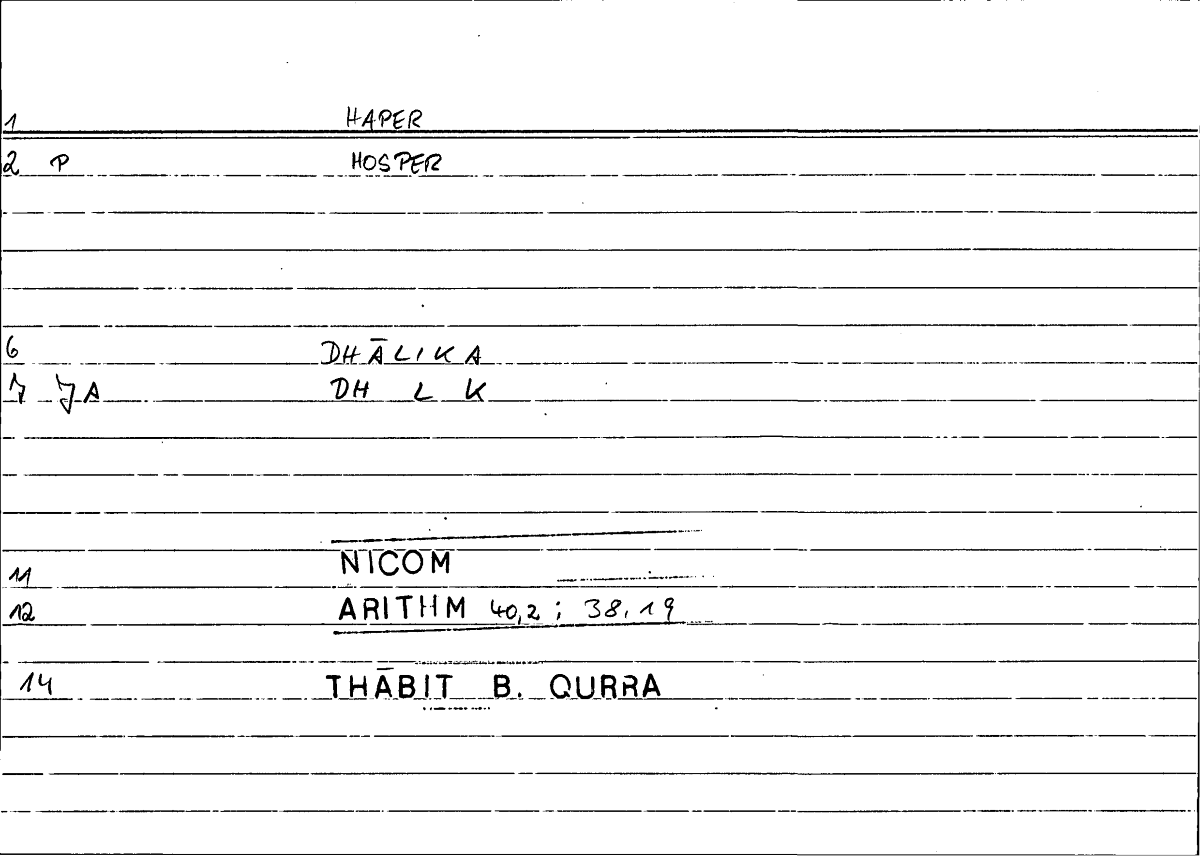 1 HAPER
2 P HOSPER
6 DHĀLIKA
7 JA DH L K
11 NICOM
12 ARITHM 40,2 ; 38,19
14 THĀBIT B. QURRA